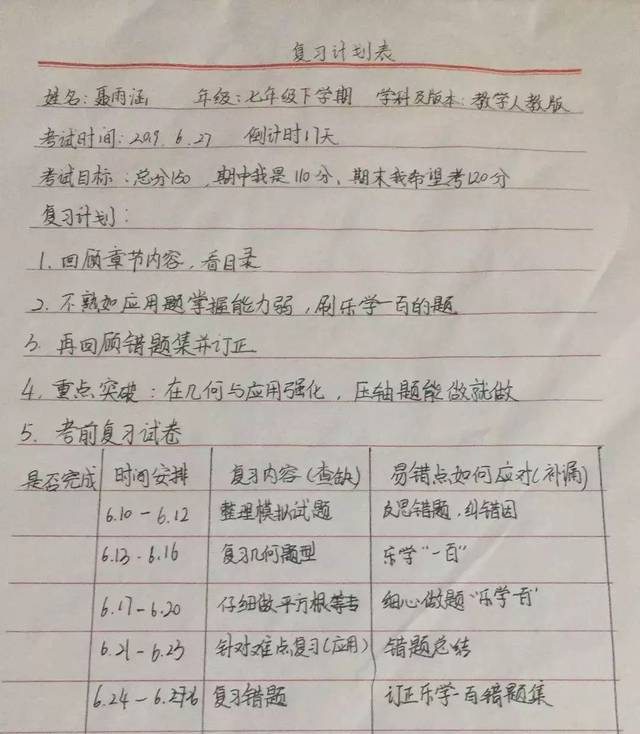 复习计划表
姓名：聂雨涵 年级：七年级下学期 学科及版本：教学人教版
考试时间：2019.6.27 倒计时17天
考试目标：总分150，期中我是110分、期末我希望考120分
复习计划：
1.回顾章节内容，看目录
2.不熟如应用题掌握能力弱，刷乐学一百的题
3.再回顾错题集并订正
4.重点突破：在几何与应用强化，压轴题能做就做
5.考前复习试卷
是否完成 时间安排 复习内容（查缺） 易错点如何应对（补漏）
6.10－6.12 整理模拟试题 反思错题，纠错因
6.13-6.16 复习几何题型 乐学“一百”
6.17-6.20 仔细做平方根等 细心做题“乐学一百”
6.21-6.23 针对难点复习（应用） 错题总结
6.24－6.26 复习错题 订正乐学一百错题集